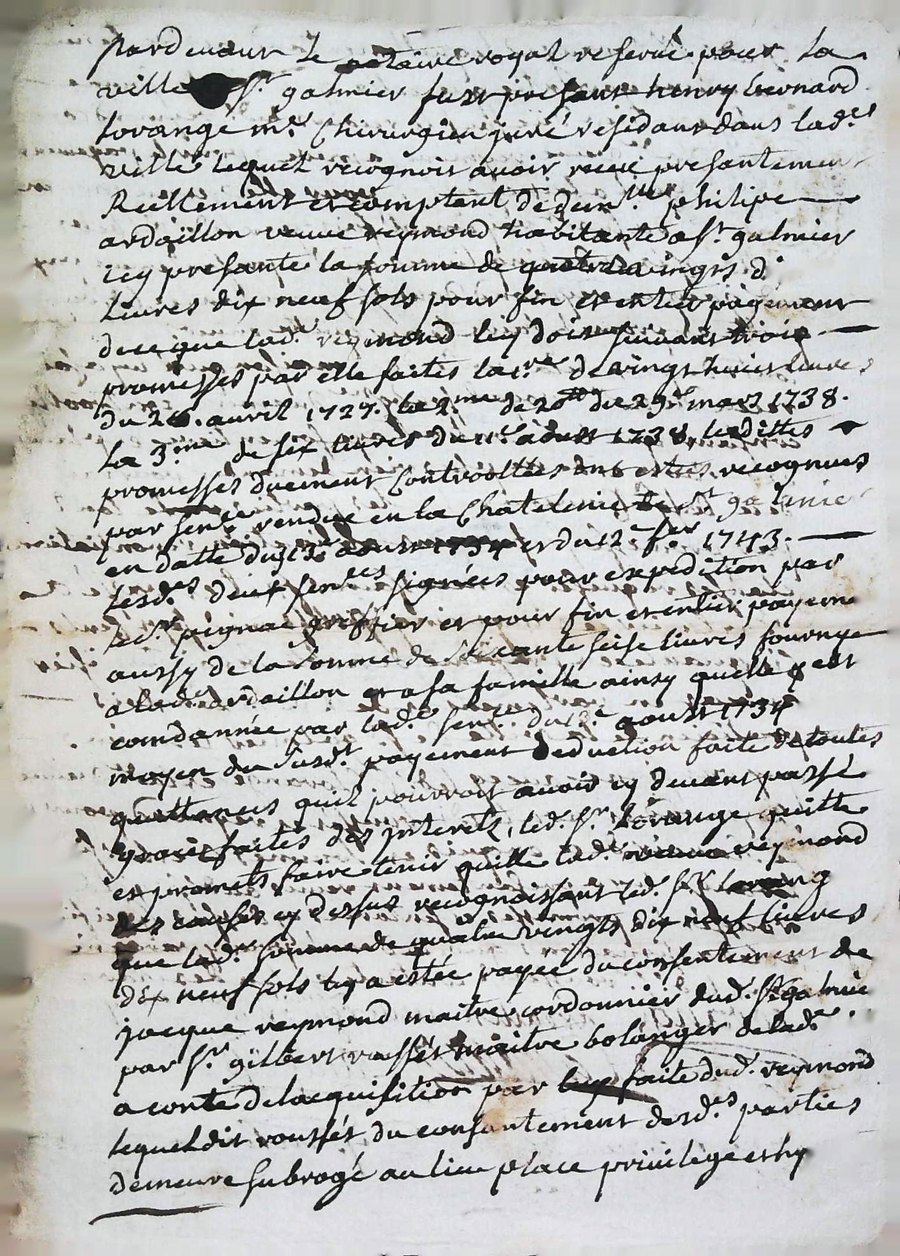 pardevant Le notaire royal reservé pour la
ville St galmier fust presant henry bernard
Lorange mre Chirurgien juré residant dans lade
ville lequel recognoit avoir receu presantement
Reellement et comptent de demlle philipe
ardaillon veuve reymond habitante a St galmier
icy presante la somme de quatrevingts d
Livres dix neuf sols pour fin et entier payement
de ce que lad. reymond luy doit suivant trois
promesses par elle faittes la 1re de vingt huict livres
du 26. avril 1727. la 2me de 20tt du 29e mars 1738.
La 3.me de six livres du 11e aoust 1738 lesdittes
promesses duement Controollées et recognues
par sence rendue en la Chatelenie de St galmier
en datte du 13e aoust 1734 et du 12e fer 1743.
lesdes deux sences signées pour expedition par
led. pignac greffier et pour fin et entier payemt
aussy de la somme de soixante seise livres fournye
a lade ardaillon et a sa famille ainsy quelle y est
condannée par lade sence du aoust 1734
moyen du susdt payement deduction faite de toutes
quittances quil pourroit avoir cy devant passé
grace faittes des interetz, led. Sr Lorange quitte
et promets faire tenir quitte lade veuve reymond
des causes cy dessus recognoissant led. Sr Lorang
que lade somme de quatre vingts dix neuf livres
dix neuf sols luy a estée payee du consentement de
jacque reymond maitre cordonnier dud. St galmie
par Sr gilbert rousset maitre bolanger de lade.
a conte de lacquisition par luy faite dud. reymond
lequel dit rousset du consantement desdes parties
demeure subrogé au lieu place privilege et hy